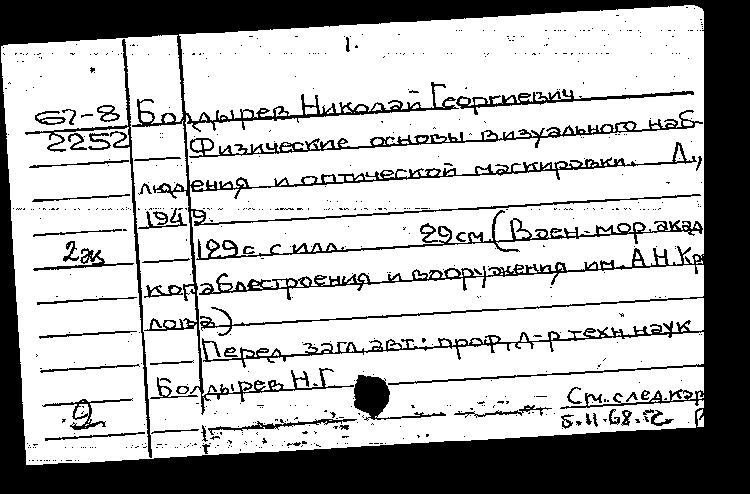 1.
67-8 Болдырев, Николай Георгиевич.
2252 Физические основы визуального наб-
людения и оптической маскировки. Л.,
1949.
2 эк 129 с. с илл. 29 см. (Воен.-мор. акад
кораблестроения и вооружения им. А.Н. Кры
лова)
Перед загл. авт.: проф., д-р техн. наук
Болдырев Н.Г
2 См. след. кар
5.II.68.